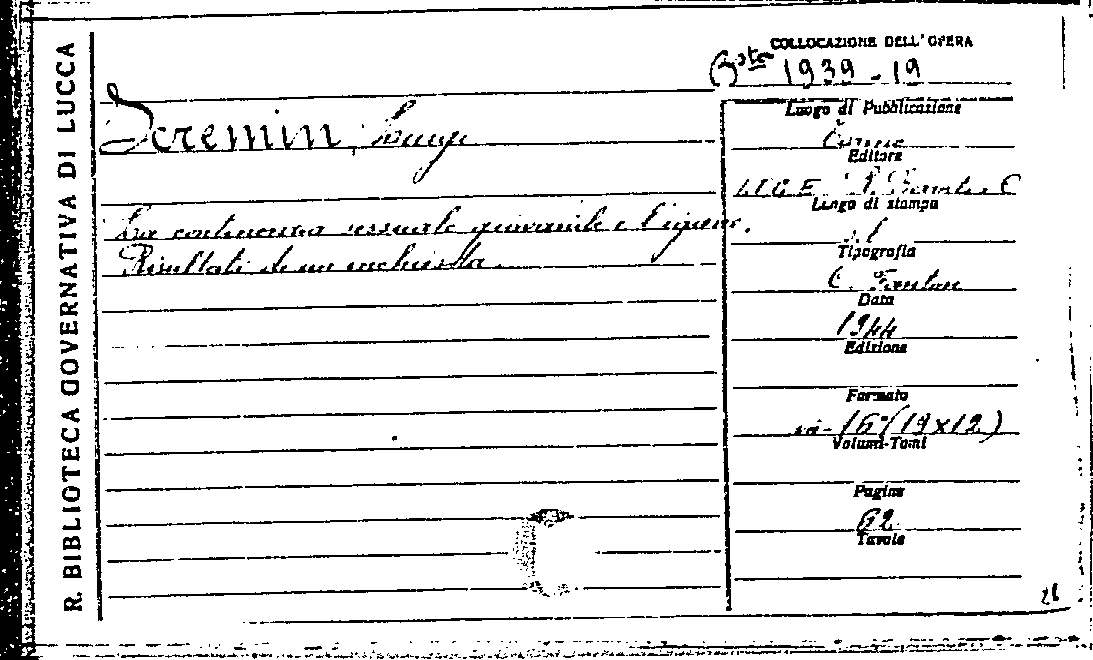 R. BIBLIOTECA GOVERNATIVA DI LUCCA
COLLOCAZIONE DELL'OPERA
1939 - 19
Scremin, Luigi
La continenza sessuale giovanile e l'igiene.
Risultati di un inchiesta.
Luogo di Pubblicazione
Torino
Editore
L.I.C.E.
Luogo di stampa
Tipografia
C. Fanton
Data
1944
Edizione
Formato
in-16°(19x12)
Volumi-Tomi
Pagine
62
Tavole